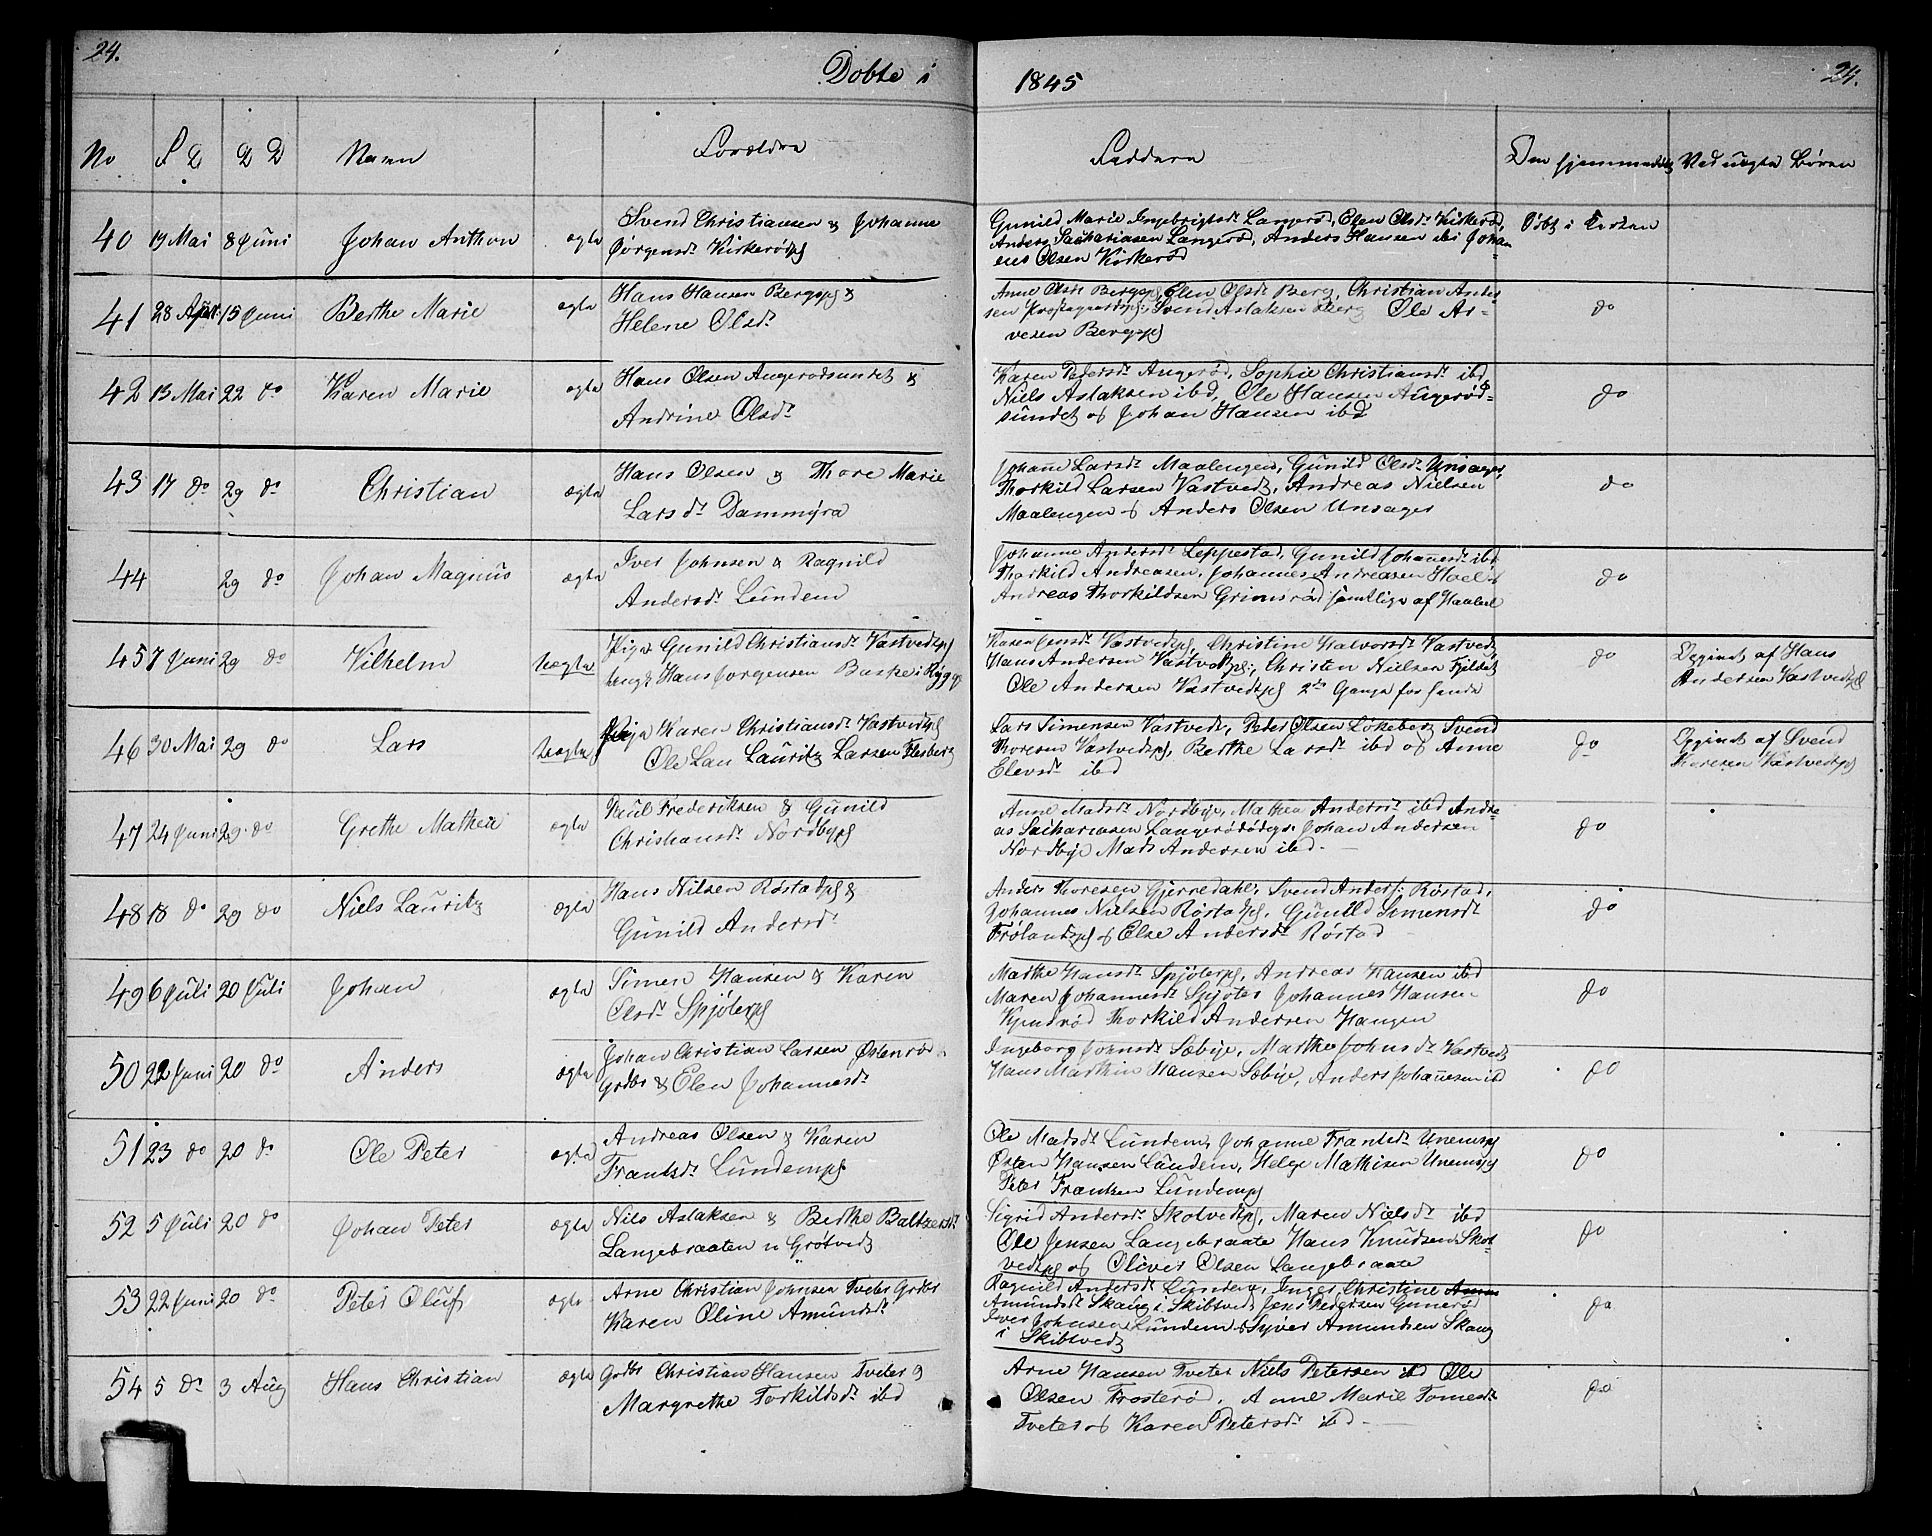 24.
Døbte i
1845
24.
No
F D
D D
Navn
Forældre
Faddere
Om hjemmedøbt
Ved uægte Børn
40 19 Mai 8 Juni Johan Anthon ægte
Svend Christiansen & Johanne
Jørgensdr Kirkerødpl
Gunild Marie Ingebrigtsdr Langerød, Elen Olsdr Kirkerød,
Anders Sachariasen Langerød, Anders Hansen ibi Johan
nes Olsen Kirkerød
Døbt i Kirken
41 28 April 15 Juni Berthe Marie ægte
Hans Hansen Bergpl &
Helene Olsdr
Anne Olsdr Bergpl, Elen Olsdr Berg, Christian Ander
sen Prestegaardspl, Svend Aslaksen Berg Ole Ar-
vesen Bergpl
do
42 13 Mai 22 do Karen Marie ægte
Hans Olsen Augerødsundet &
Andrine Olsdr
Karen Pedersdr Augerød, Sophie Christiansdr ibd
Niels Aslaksen ibd, Ole Hansen Augerød-
sundet og Johan Hansen ibd
do
43 17 do 29 do Christian ægte
Hans Olsen & Thore Marie
Larsdr Dammyra
Johañe Larsdr Maalengen, Gunild Olsdr Unsager,
Thorkild Larsen Vastvedt, Andreas Nielsen
Maalengen & Anders Olsen Unsager
do
44 29 do Johan Magnus ægte
Iver Johnsen & Ragnild
Andersdr Lundem
Johanne Andersdr Leppestad, Gunild Johañesdr ibd
Thorkild Andreasen, Johannes Andreasen Hoel &
Andreas Thorkildsen Grimsrød samtlige af Haabøl
do
45 7 Juni 29 do Vilhelm Uægte
Pige Gunild Christiansdr Vastvedtpl
Ungk Hans Jorgensen Buske i Rygge
Karen Jensdr Vastvedtpl, Christine Halvorsdr Vastvedt
Hans Andersen Vastvedtpl, Christen Nielsen Fjeldet
Ole Andersen Vastvedtpl 2de Gange for hende
do
Opgivet af Hans
Andersen Vastvedtpl
46 30 Mai 29 do Lars Uægte
Pige Karen Christiansdr Vastvedtpl
Ole Lau Lauritz Larsen Flesberg
Lars Simensen Vastvedt, Peder Olsen Løkeberg Svend
Thoresen Vastvedtpl, Berthe Larsdr ibd og Anne
Elevsdr ibd
do
Opgivet af Svend
Thoresen Vastvedtpl
47 24 Juni 29 do Grethe Mathea ægte
Poul Frederiksen & Gunild
Christiansdr Nordbypl
Anne Madsdr Nordbye, Mathea Andersdr ibd Andre-
as Sachariasen Langerødødeg. Johan Andersen
Nordbye Mads Andersen ibd.
do
48 18 do 29 do Niels Lauritz ægte
Hans Nilsen Røstadpl &
Gunild Andersdr
Anders Thoresen Gjerredahl, Svend Anders: Røstad,
Johannes Nielsen Røstadpl, Gunild Simensdr
Frølandspl & Else Andersdr Røstad
do
49 6 Juli 20 Juli Johan ægte
Simen Hansen & Karen
Olsdr Spjøterpl
Marthe Hansdr Spjøterpl, Andreas Hansen ibd
Maren Johannesdr Spjøter Johannes Hansen
Kjendrød Thorkild Andersen Haugen
do
50 22 Juni 20 do Anders ægte
Johan Christian Larsen Østenrød
Grdbr & Elen Johannesdr
Ingeborg Johnsdr Sæbye, Marthe Johnsdr Vastvedt
Hans Marthin Hansen Sæbye, Anders Johañesen ibd
do
51 23 do 20 do Ole Peter ægte
Andreas Olsen & Karen
Frantsdr Lundempl
Ole Madsdr Lundem, Johanne Frantsdr Unemspl
Østen Hansen Lundem, Helge Mathisen Unemspl
Peter Frantsen Lundempl
do
52 5 Juli 20 do Johan Peter ægte
Nils Aslaksen & Berthe Baltzersdr
Langebraaten u Grøtvedt
Sigrid Andersdr Skolvedtpl, Maren Nielsdr ibd
Ole Jensen Langebraate Hans Knudsen Skol-
vedtpl og Oliver Olsen Langebraate
do
53 22 Juni 20 do Peter Oluf ægte
Arne Christian Johnsen Tveter Grdbr
Karen Oline Amundsdr
Ragnild Andersdr Lundem, Inger Christine
Amundsdr Skaug i Skibtvedt Jens Pedersen Gunerød
Iver Johnsen Lundem & Syver Amundsen Skaug
i Skibtvedt
do
54 5 do 3 Aug Hans Christian ægte
Grdbr Christian Hansen Tveter &
Margrethe Torkildsdr ibd
Arne Hansen Tveter Niels Petersen ibd Ole
Olsen Frosterød, Anne Marie Tomesdr
Tveter & Karen Petersdr ibd.
do